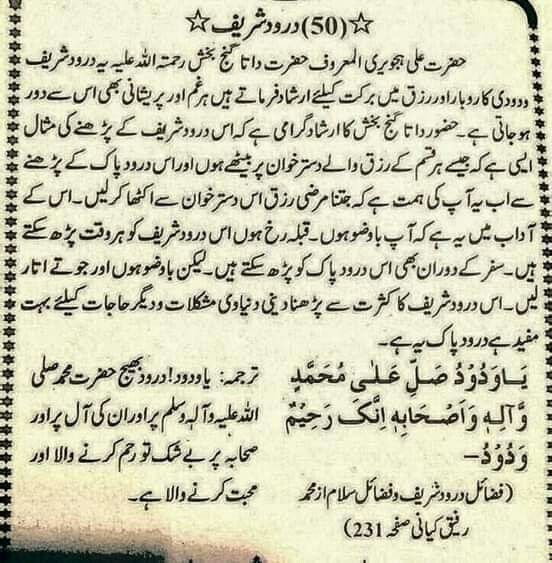 ☆(50) درود شریف☆
حضرت علی ہجویری المعروف حضرت داتا گنج بخش رحمتہ اللہ علیہ یہ درود شریف
ودودی کاروبار اور رزق میں برکت کیلئے ارشاد فرماتے ہیں ہر غم اور پریشانی بھی اس سے دور
ہو جاتی ہے۔ حضور داتا گنج بخش کا ارشاد گرامی ہے کہ اس درود شریف کے پڑھنے کی مثال
ایسی ہے کہ جیسے ہر قسم کے رزق والے دستر خوان پر بیٹھے ہوں اور اس درود پاک کے پڑھنے
سے اب یہ آپ کی ہمت ہے کہ جتنا مرضی رزق اس دستر خوان سے اکٹھا کر لیں۔ اس کے
آداب میں یہ ہے کہ آپ باوضو ہوں۔ قبلہ رخ ہوں اس درود شریف کو ہر وقت پڑھ سکتے
ہیں۔ سفر کے دوران بھی اس درود پاک کو پڑھ سکتے ہیں۔ لیکن باوضو ہوں اور جوتے اتار
لیں۔ اس درود شریف کا کثرت سے پڑھنا دینی دنیاوی مشکلات و دیگر حاجات کیلئے بہت
مفید ہے درود پاک یہ ہے۔
یَاوَدُوْدُ صَلِّ عَلٰی مُحَمَّدٍ
وَّآلِہٖ وَاَصْحَابِہٖ اِنَّکَ رَحِیْمٌ
وَدُوْدُ–
(فضائل درود شریف و فضائل سلام از محمد
رفیق کیانی صفحہ 231)
ترجمہ: یا ودود! درود بھیج حضرت محمد صلی
اللہ علیہ وآلہ وسلم پر اور ان کی آل پر اور
صحابہ پر بے شک تو رحم کرنے والا اور
محبت کرنے والا ہے۔